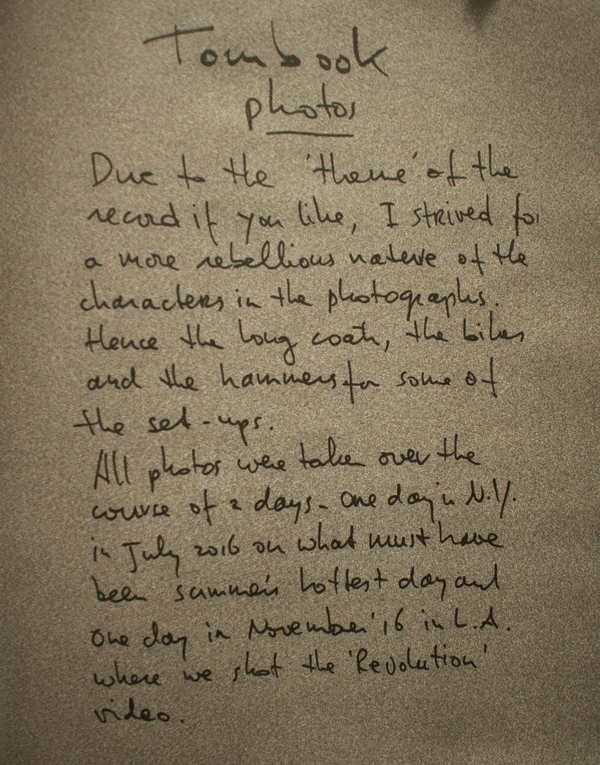 Tourbook
photos
Due to the 'theme' of the
record if you like, I strived for
a more rebellious nature of the
characters in the photographs.
Hence the long coats, the bikes
and the hammers for some of
the set-ups.
All photos were taken over the
course of 2 days - One day in N.Y.
in July 2016 on what must have
been summer's hottest day and
one day in November '16 in L.A.
where we shot the 'Revolution'
video.